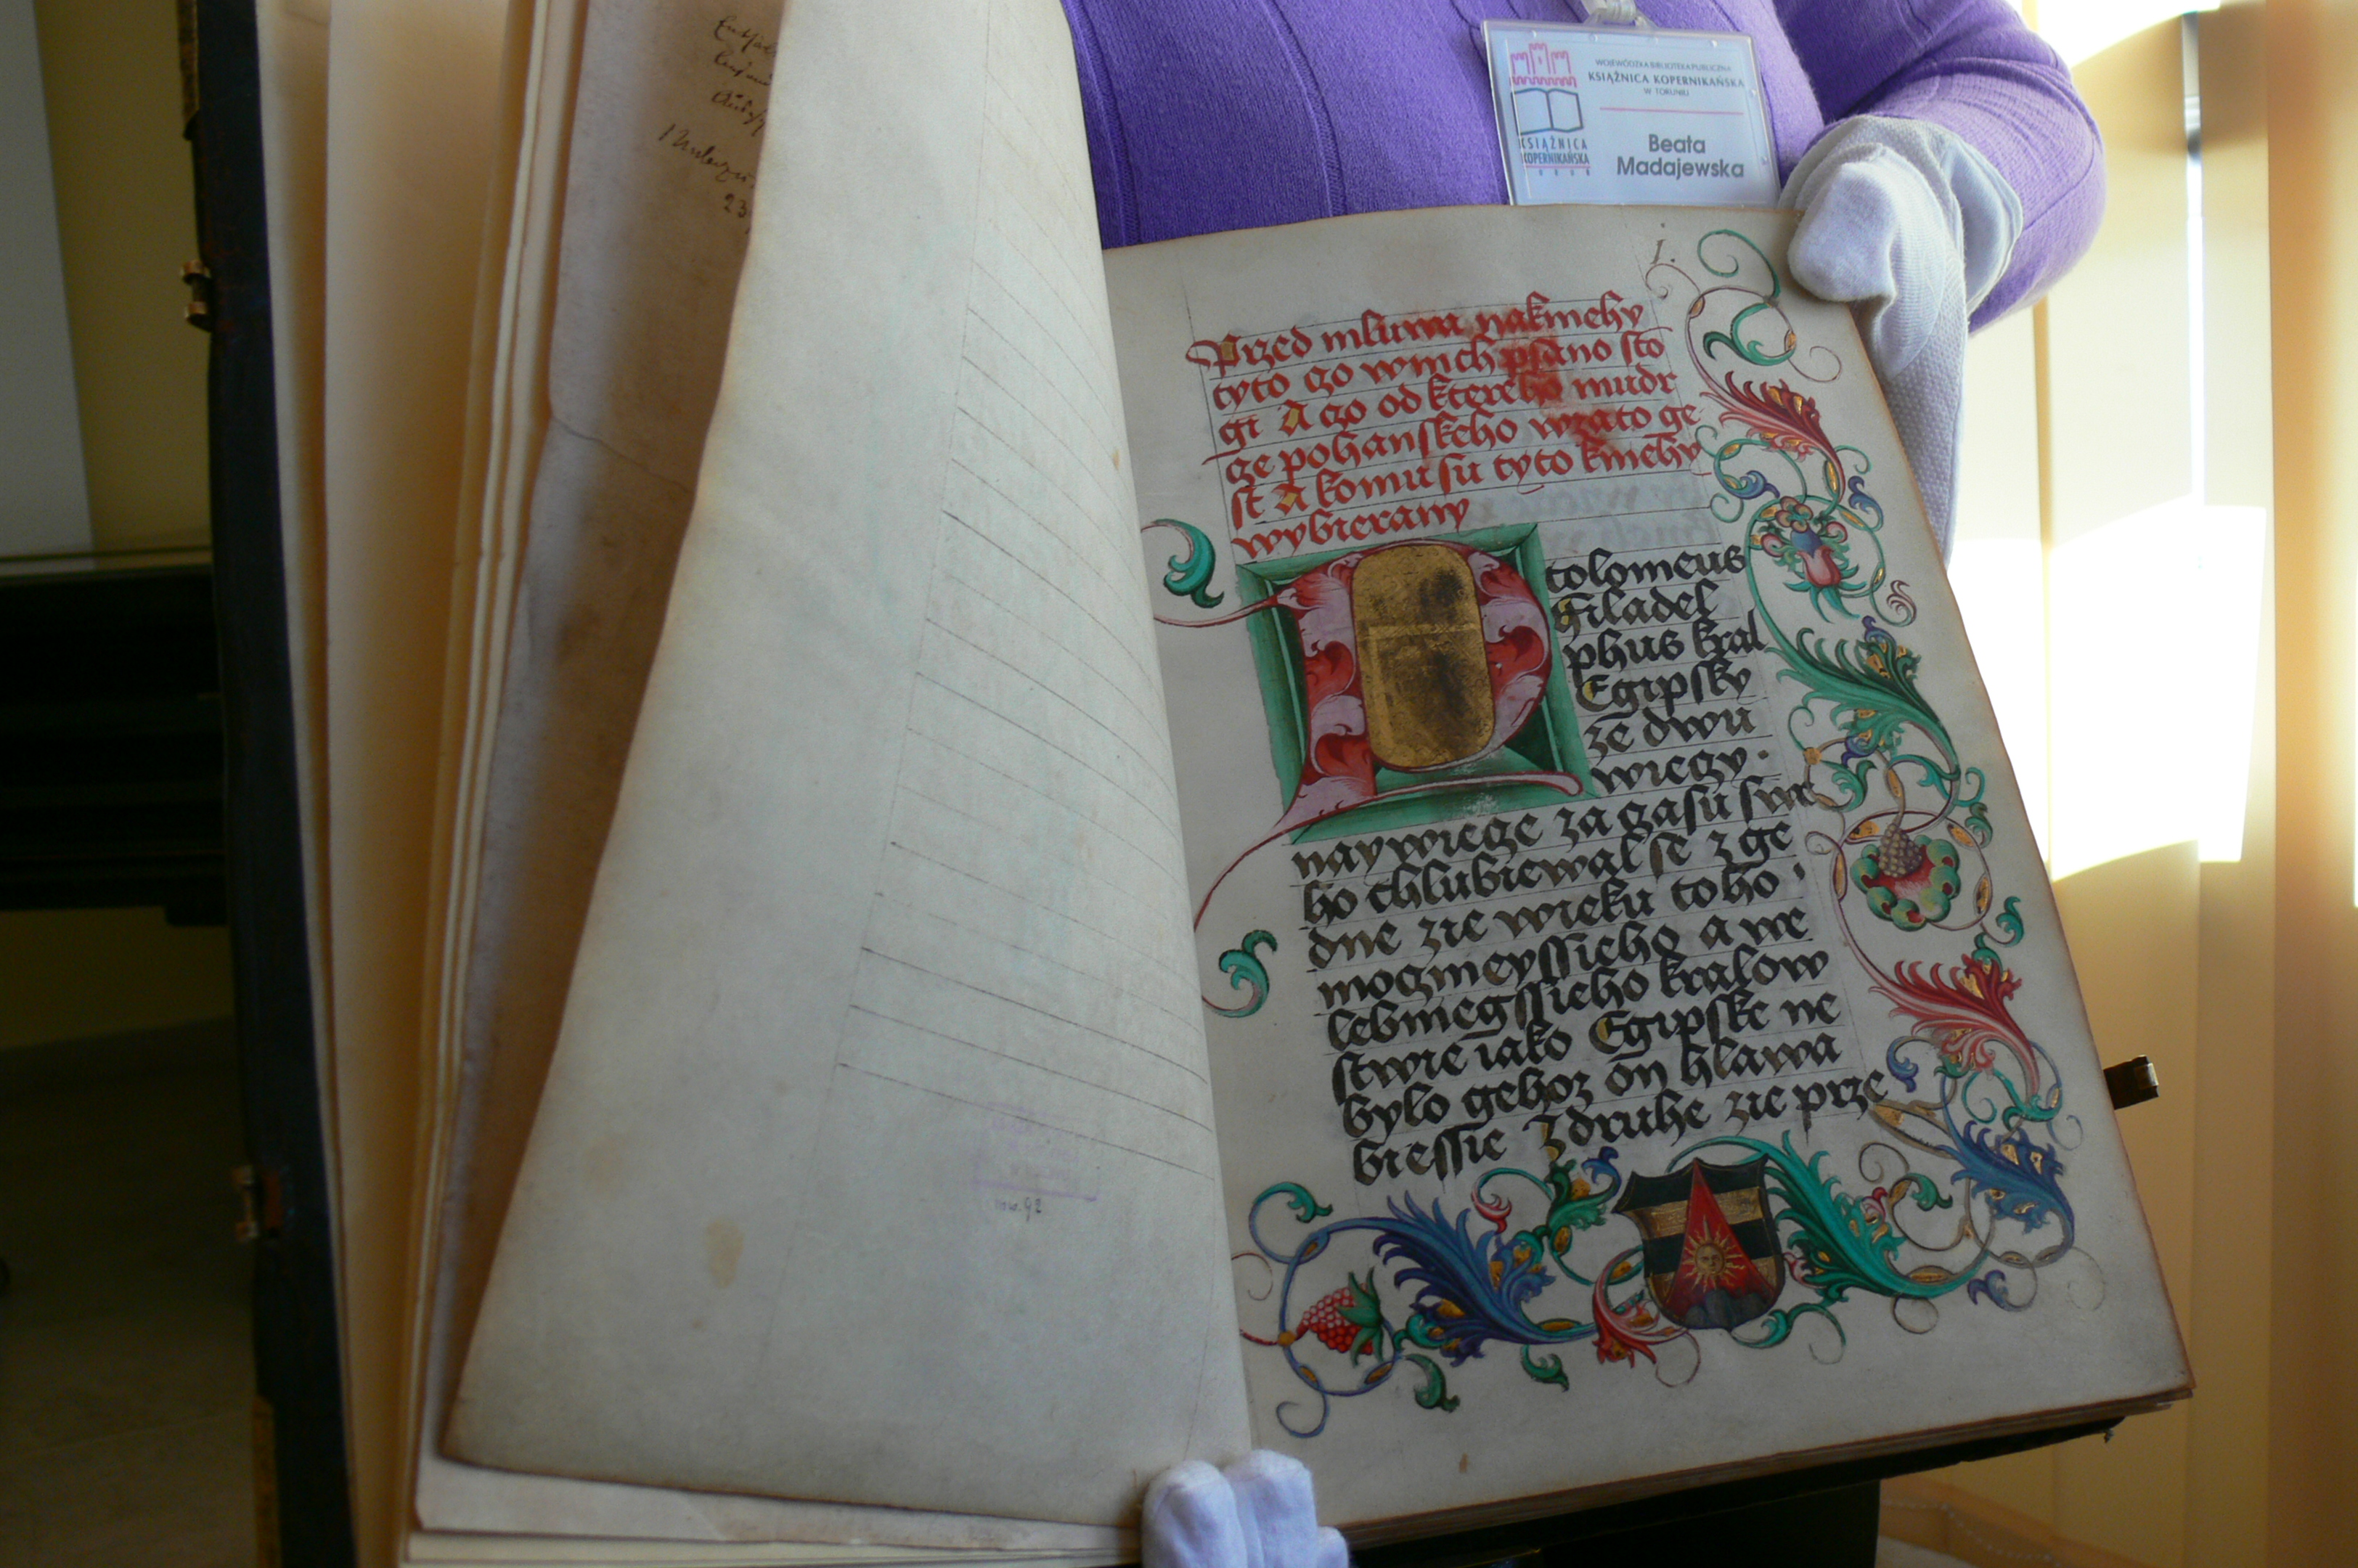 WOJEWÓDZKA BIBLIOTEKA PUBLICZNA
KSIĄŻNICA KOPERNIKAŃSKA
W TORUNIU
KSIĄŻNICA
KOPERNIKAŃSKA
Beata
Madajewska
1.
Przed mluwa nakniehy
tyto czo wnich psano sto
gi A czo od ktereho mudr
cze pohanskeho wzato ge
st A komu su tyto kniehy
wybierany
Ptolomeus
Filadel
phus kral
Egipsky
ze dwu
wieczy.
naywiecze za czasu swe
ho chlubiewal se z ge
dne zie wieku toho
mocznieyssieho a we
lebniegssieho kralow
stwie iako Egipske ne
bylo gehoz on hlawa
biessie Zdruhe zie prze
23